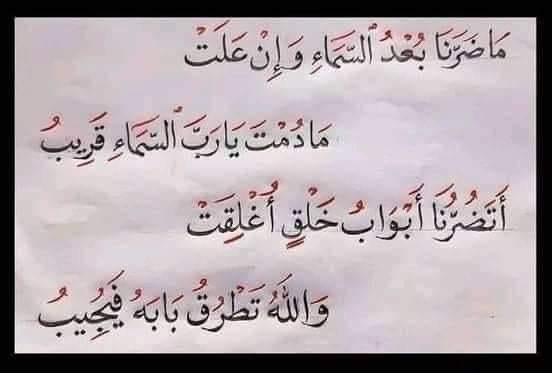 مَا ضَرَّنَا بُعْدُ السَّمَاءِ وَإِنْ عَلَتْ
مَا دُمْتَ يَا رَبَّ السَّمَاءِ قَرِيبُ
أَتَضُرُّنَا أَبْوَابُ خَلْقٍ أُغْلِقَتْ
وَاللهُ تَطْرُقُ بَابَهُ فَيُجِيبُ